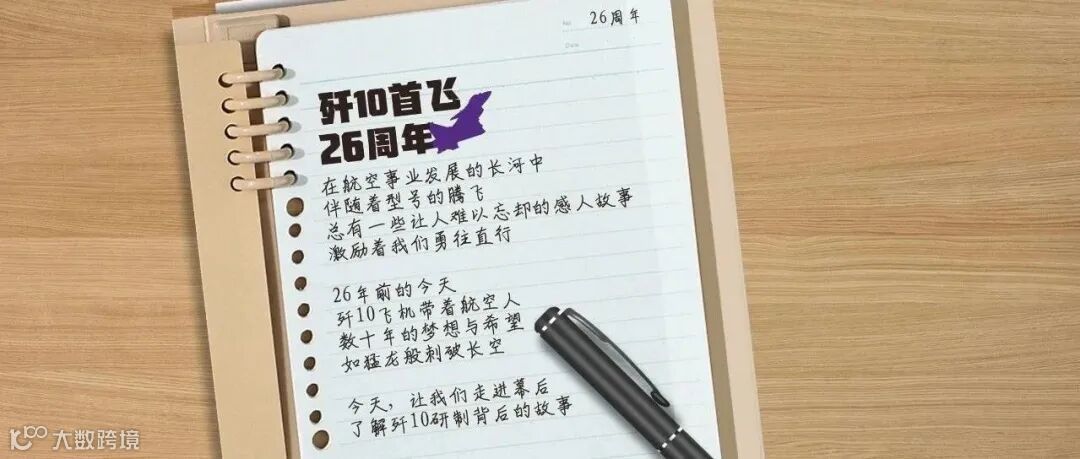 No.
26周年
Date
歼10首飞
26周年
在航空事业发展的长河中
伴随着型号的腾飞
总有一些让人难以忘却的感人故事
激励着我们勇往直行
26年前的今天
歼10飞机带着航空人
数十年的梦想与希望
如猛龙般刺破长空
今天，让我们走进幕后
了解歼10研制背后的故事
大数跨境